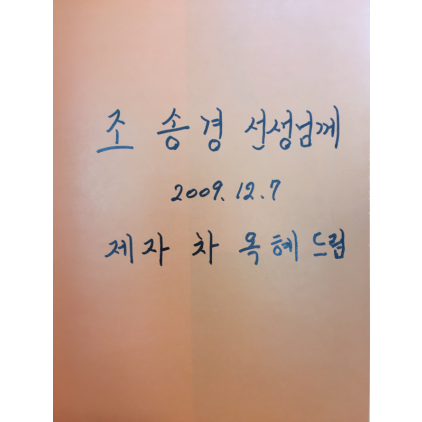 조 송 경 선생님께
2009. 12. 7
제자 차 옥혜 드림